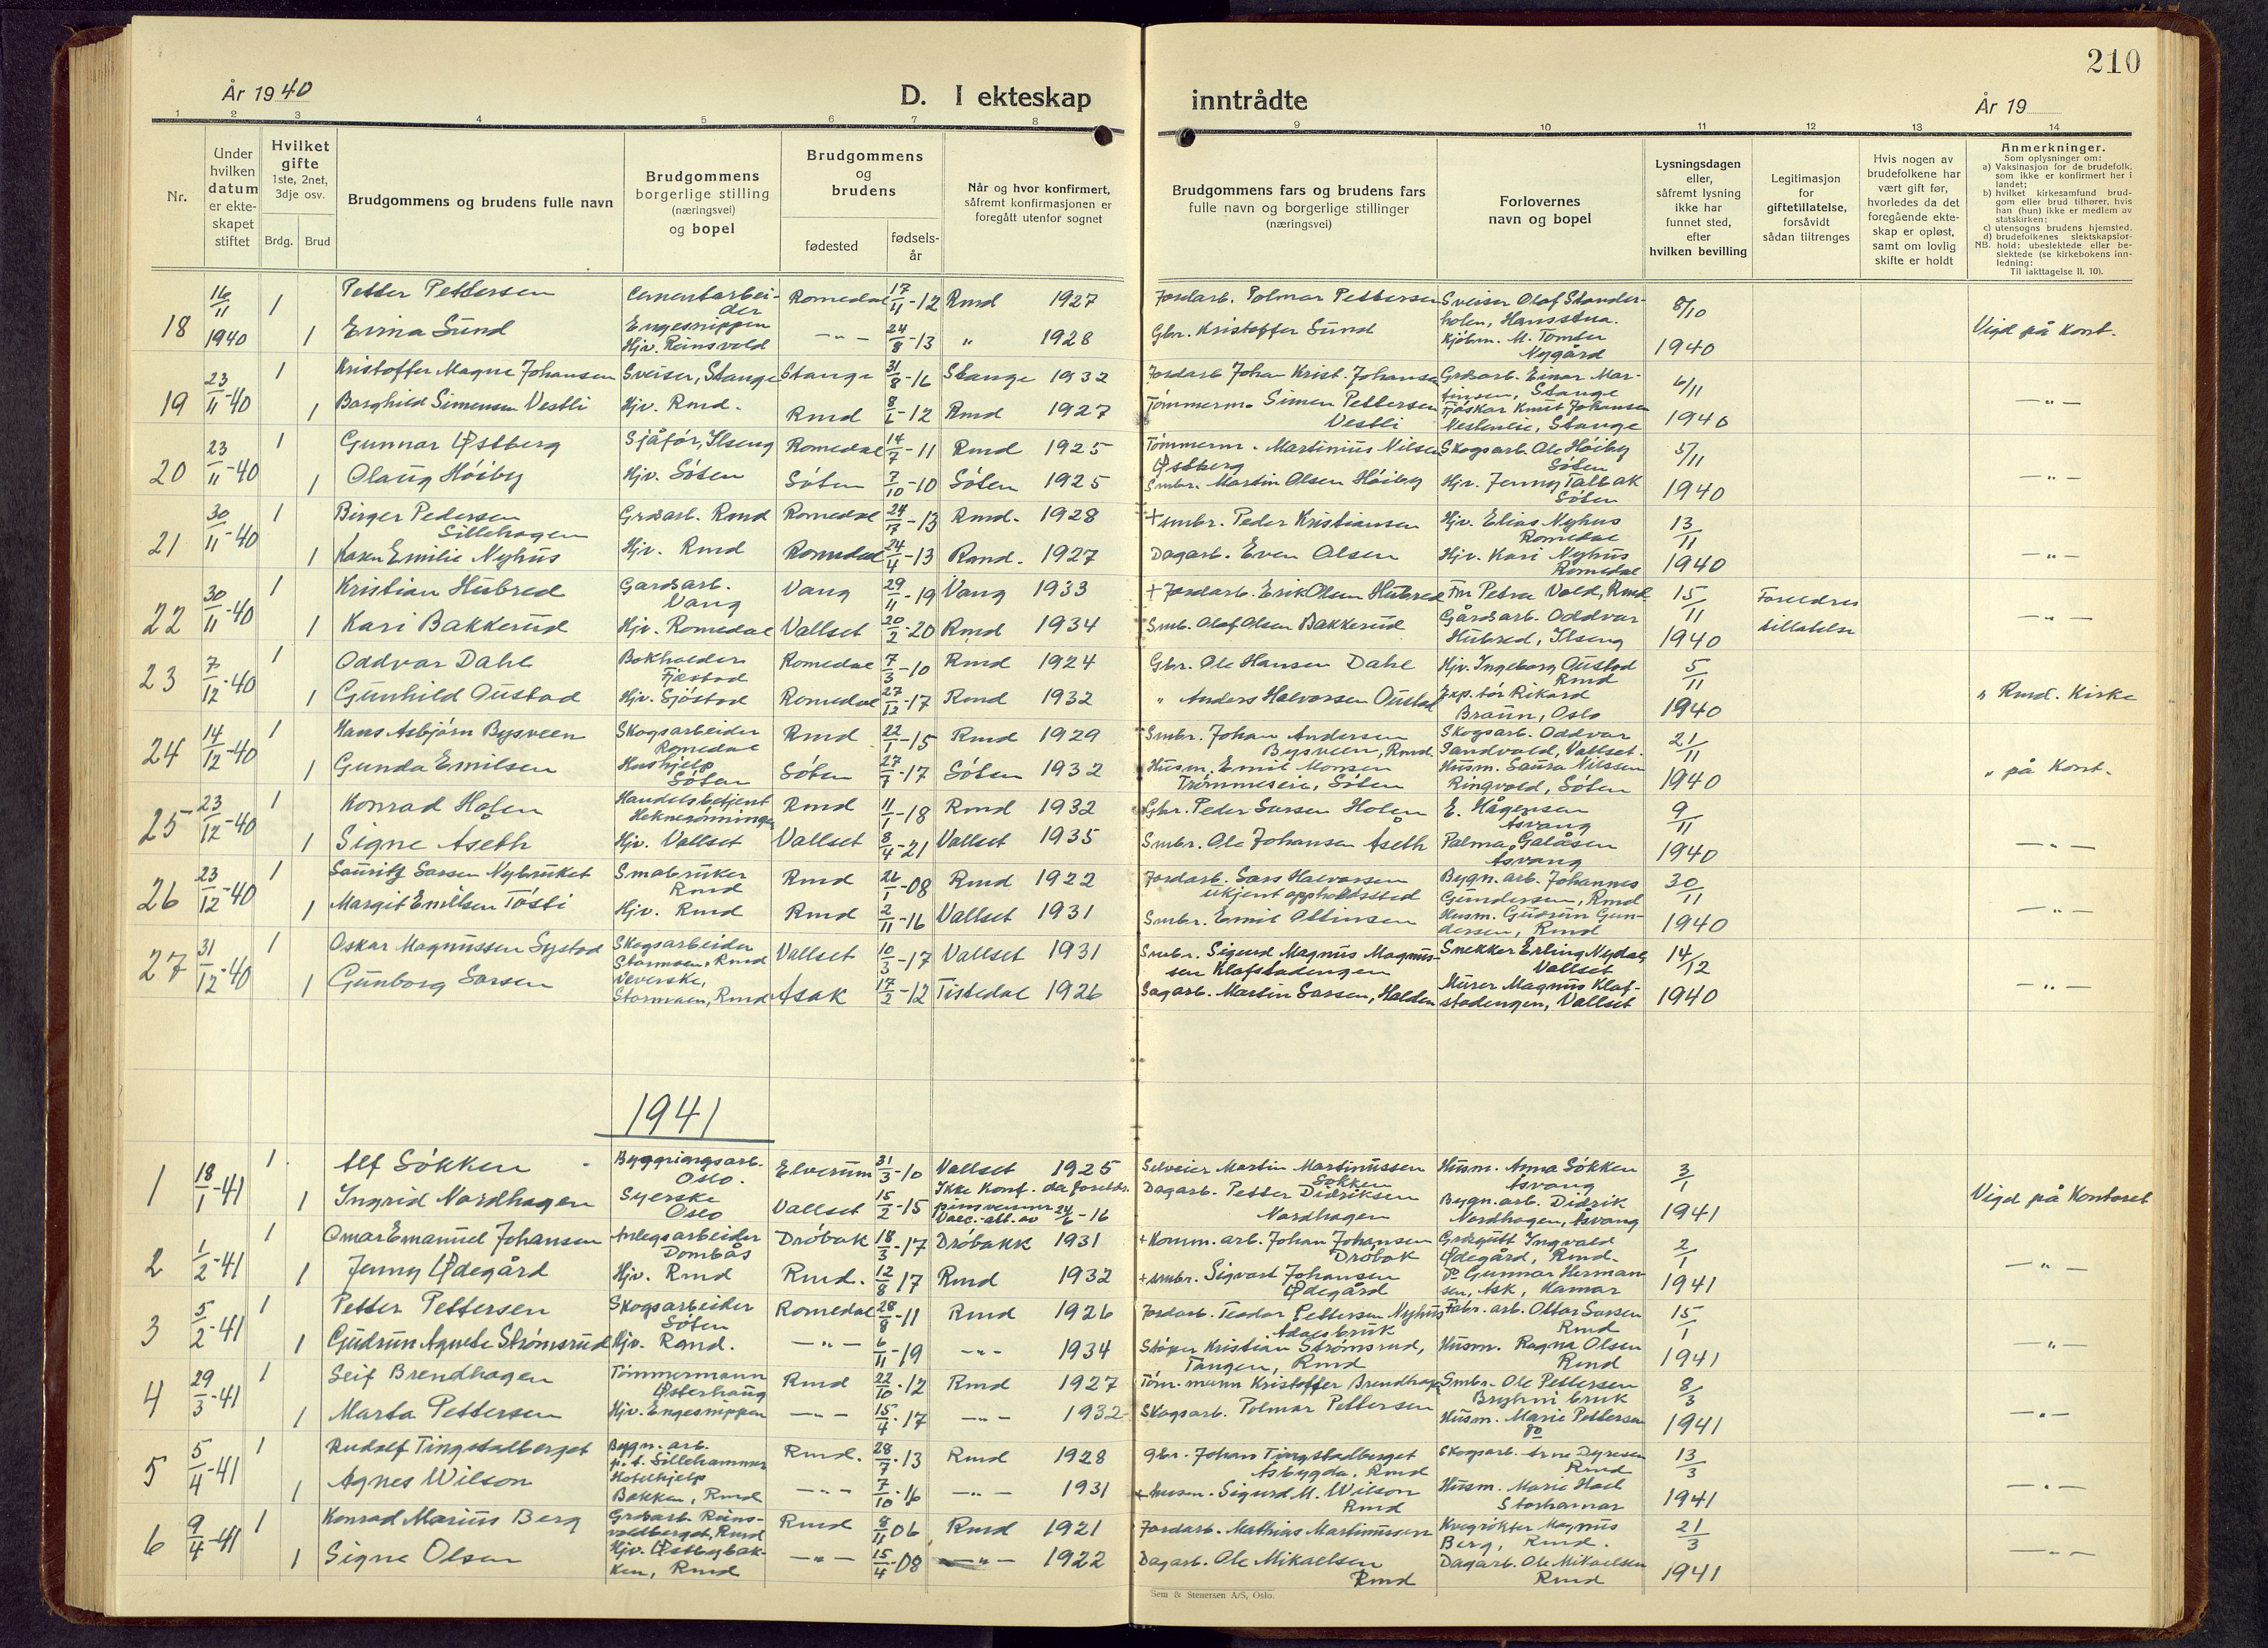 210
År 1940
D. I ekteskap inntrådte
År 19
1 2 3 4 5 6 7 8 9 10 11 12 13 14
Nr.
Under hvilken datum er ekteskapet stiftet
Hvilket gifte 1ste, 2net, 3dje osv.
Brdg. Brud
Brudgommens og brudens fulle navn
Brudgommens borgerlige stilling (næringsvei) og bopel
Brudgommens og brudens
fødested
fødselsår
Når og hvor konfirmert, såfremt konfirmasjonen er foregått utenfor sognet
Brudgommens fars og brudens fars fulle navn og borgerlige stillinger (næringsvei)
Forlovernes navn og bopel
Lysningsdagen eller, såfremt lysning ikke har funnet sted, efter hvilken bevilling
Legitimasjon for giftetillatelse, forsåvidt sådan tiltrenges
Hvis nogen av brudefolkene har vært gift før, hvorledes da det foregående ekteskap er opløst, samt om lovlig skifte er holdt
Anmerkninger.
Som oplysninger om:
a) Vaksinasjon for de brudefolk, som ikke er konfirmert her i landet;
b) hvilket kirkesamfund brudgom eller brud tilhører, hvis han (hun) ikke er medlem av statskirken;
c) utensogns brudens hjemsted.
d) brudefolkenes slektskapsforhold: ubeslektede eller beslektede (se kirkebokens innledning:
NB.
Til iakttagelse II. 10).
18 16/11 1940 1 Petter Pettersen Cementarbeider Engesnippen Romedal 17/11-12 Rmd 1927 Jordarb. Polmar Pettersen Sveiser Olaf Standerholen, Hansstua. 8/10
1 Erna Sund Hjv. Reinsvold -"- 24/8-13 " 1928 Gbr. Kristoffer Sund Kjøbm. M. Tomter Nygård 1940 Vigd på Kont.
19 23/11-40 1 Kristoffer Magne Johansen Sveiser, Stange Stange 31/8-16 Stange 1932 Jordarb Johan Krist. Johansen Grdsarb. Einar Martinsen, Stange 6/11
1 Borghild Simensen Vestli Hjv. Rmd. Rmd 8/6-12 Rmd 1927 Tømmerm. Simen Pettersen Vestli Fjøskar Knut Johansen Vestenlie, Stange 1940 -"-
20 23/11-40 1 Gunnar Østberg Sjåfør, Ilseng Romedal 14/7-11 Rmd 1925 Tømmerm. Martinius Nilsen Østberg Skogsarb. Ole Høiby Løten 5/11
1 Olaug Høiby Hjv. Løten Løten 7/10-10 Løten 1925 Smbr. Martin Olsen Høiby Hjv. Jenny Talbak Løten 1940 -"-
21 30/11-40 1 Birger Pedersen Lillehagen Grdsarb. Rmd Romedal 24/7-13 Rmd. 1928 + smbr. Peder Kristiansen Hjv. Elias Nyhus Romedal 13/11
1 Karen Emilie Nyhus Hjv. Rmd Romedal 24/4-13 Romd. 1927 Dagarb. Even Olsen Hjv. Kari Nyhus Romedal 1940 -"-
22 30/11-40 1 Kristian Hubred Gardsarb. Vang Vang 29/11-19 Vang 1933 + Jordarb. Erik Olsen Hubred Fru Petra Vold, Rmd. 15/11 Foreldres
1 Kari Bakkerud Hjv. Romedal Vallset 20/2-20 Rmd 1934 Smb. Olof Olsen Bakkerud Gårdsarb. Oddvar Hubred, Ilseng 1940 tillatelse -"-
23 7/12-40 1 Oddvar Dahl Bokholder Fjæstad Romedal 7/3-10 Rmd 1924 Gbr. Ole Hansen Dahl Hjv. Ingeborg Oustad Rmd 5/11
1 Gunhild Oustad Hjv. Sjøstad Romedal 27/12-17 Rmd 1932 " Anders Halvorsen Oustad Exp.tør Rikard Braun, Oslo 1940 " Rmd. Kirke
24 14/12-40 1 Hans Asbjørn Bysveen Skogsarbeider Romedal Rmd 22/1-15 Rmd 1929 Smbr. Johan Andersen Bysveen, Rmd. Skogsarb. Oddvar Sandvold, Vallset. 21/11
1 Gunda Emilsen Hushjelp Løten Løten 27/7-17 Løten 1932 Husm. Emil Monsen Trømmeseie, Løten Husm. Laura Nilssen Ringvold, Løten 1940 " på Kont.
25 23/12-40 1 Konrad Holen Handelsbetjent Heknerønningen Rmd 11/1-18 Rmd 1932 Gbr. Peder Larsen Holen E. Hågensen Åsvang 9/11
1 Signe Åseth Hjv. Vallset Vallset 8/4-21 Vallset 1935 Smbr. Ole Johansen Åseth Palma Galåsen Åsvang 1940 -"-
26 23/12-40 1 Lauritz Larsen Nybruket Småbruker Rmd Rmd 26/1-08 Rmd 1922 Jordarb. Lars Halvorsen ukjent oppholdssted Bygn. arb. Johannes Gundersen, Rmd 30/11
1 Margit Emilsen Tøsti Hjv. Rmd Rmd 2/11-16 Vallset 1931 Smbr. Emil Ottinsen Husm. Gudrun Gundersen, Rmd 1940 -"-
27 31/12-40 1 Oskar Magnussen Systad Skogsarbeider Stormoen, Rmd Vallset 10/3-17 Vallset 1931 Smbr. Sigurd Magnus Magnussen Klafstadengen Snekker Erling Nydal, Vallset 14/12
1 Gunborg Larsen Veverske, Stormoen, Rmd Asak 17/2-12 Tistedal 1926 Sagarb. Martin Larsen, Halden Murer Magnus Klafstadengen, Vallset 1940 -"-
1941
1 18/1-41 1 Alf Løkken Bygningsarb. Oslo. Elverum 31/3-10 Vallset 1925 Selveier Martin Martinussen Løkken Husm. Anna Løkken Åsvang 3/1
1 Ingrid Nordhagen Syerske Oslo Vallset 15/2-15 Ikke Konf. da foreldr. pinsvenner Vacc.-att. av 24/6-16 Dagarb. Petter Didriksen Nordhagen Bygn.arb. Didrik Nordhagen, Åsvang 1941 Vigd på Kontoret
2 1/2-41 1 Omar Emanuel Johansen Anlegsarbeider Dombås Drøbak 18/3-17 Drøbakk 1931 + Komm. arb. Johan Johansen Drøbak Grdsgutt Ingvald Ødegård, Rmd. 2/1
1 Jenny Ødegård Hjv. Rmd Rmd. 12/8 17 Rmd 1932 + smbr. Sigvart Johansen Ødegård Do Gunnar Hermansen, Ask, Hamar 1941 -"-
3 5/2-41 1 Petter Pettersen Skogsarbeider Løten Romedal 28/8-11 Rmd 1926 Jordarb. Teodor Pettersen Nyhus Ådalsbruk Fabr. arb. Ottar Larsen Rmd 15/1
1 Gudrun Agnete Strømsrud Hjv. Romd. -"- 6/11-19 -"- 1934 Støper Kristian Strømsrud, Tangen, Rmd Husm. Ragna Olsen Rmd 1941 -"-
4 29/3-41 1 Leif Brendhagen Tømmermann Østerhaug Rmd 22/10-12 Rmd 1927 Tøm.mann Kristoffer Brendhagen Smbr. Ole Pettersen Bryhni bruk 8/3
1 Marta Pettersen Hjv. Engesnippen -"- 15/4-17 -"- 1932 Skogsarb. Polmar Pettersen Husm. Marie Pettersen Do 1941 -"-
5 5/4-41 1 Rudolf Tingstadberget Bygn. arb. p.t. Lillehammer Rmd. 28/7-13 Rmd 1928 gbr. Johan Tingstadberget Åsbygda, Rmd Skogsarb. Arne Dyresen Rmd 13/3
1 Agnes Wilson Hotelhjelp Bakken, Rmd -"- 7/10-16 -"- 1931 + husm. Sigurd M. Wilson Rmd Husm. Marie Hoel Storhamar 1941 -"-
6 9/4-41 1 Konrad Marius Berg Grdsarb Reinsvoldberget, Rmd Rmd 8/11 06 Rmd 1921 Jordarb. Mathias Martinussen Kvegrøkter Magnus Berg, Rmd. 21/3
1 Signe Olsen Hjv. Østbybakken, Rmd -"- 15/4-08 -"- 1922 Dagarb. Ole Mikaelsen Rmd Dagarb. Ole Mikaelsen Rmd 1941 -"-
Sem & Stenersen A/S, Oslo.